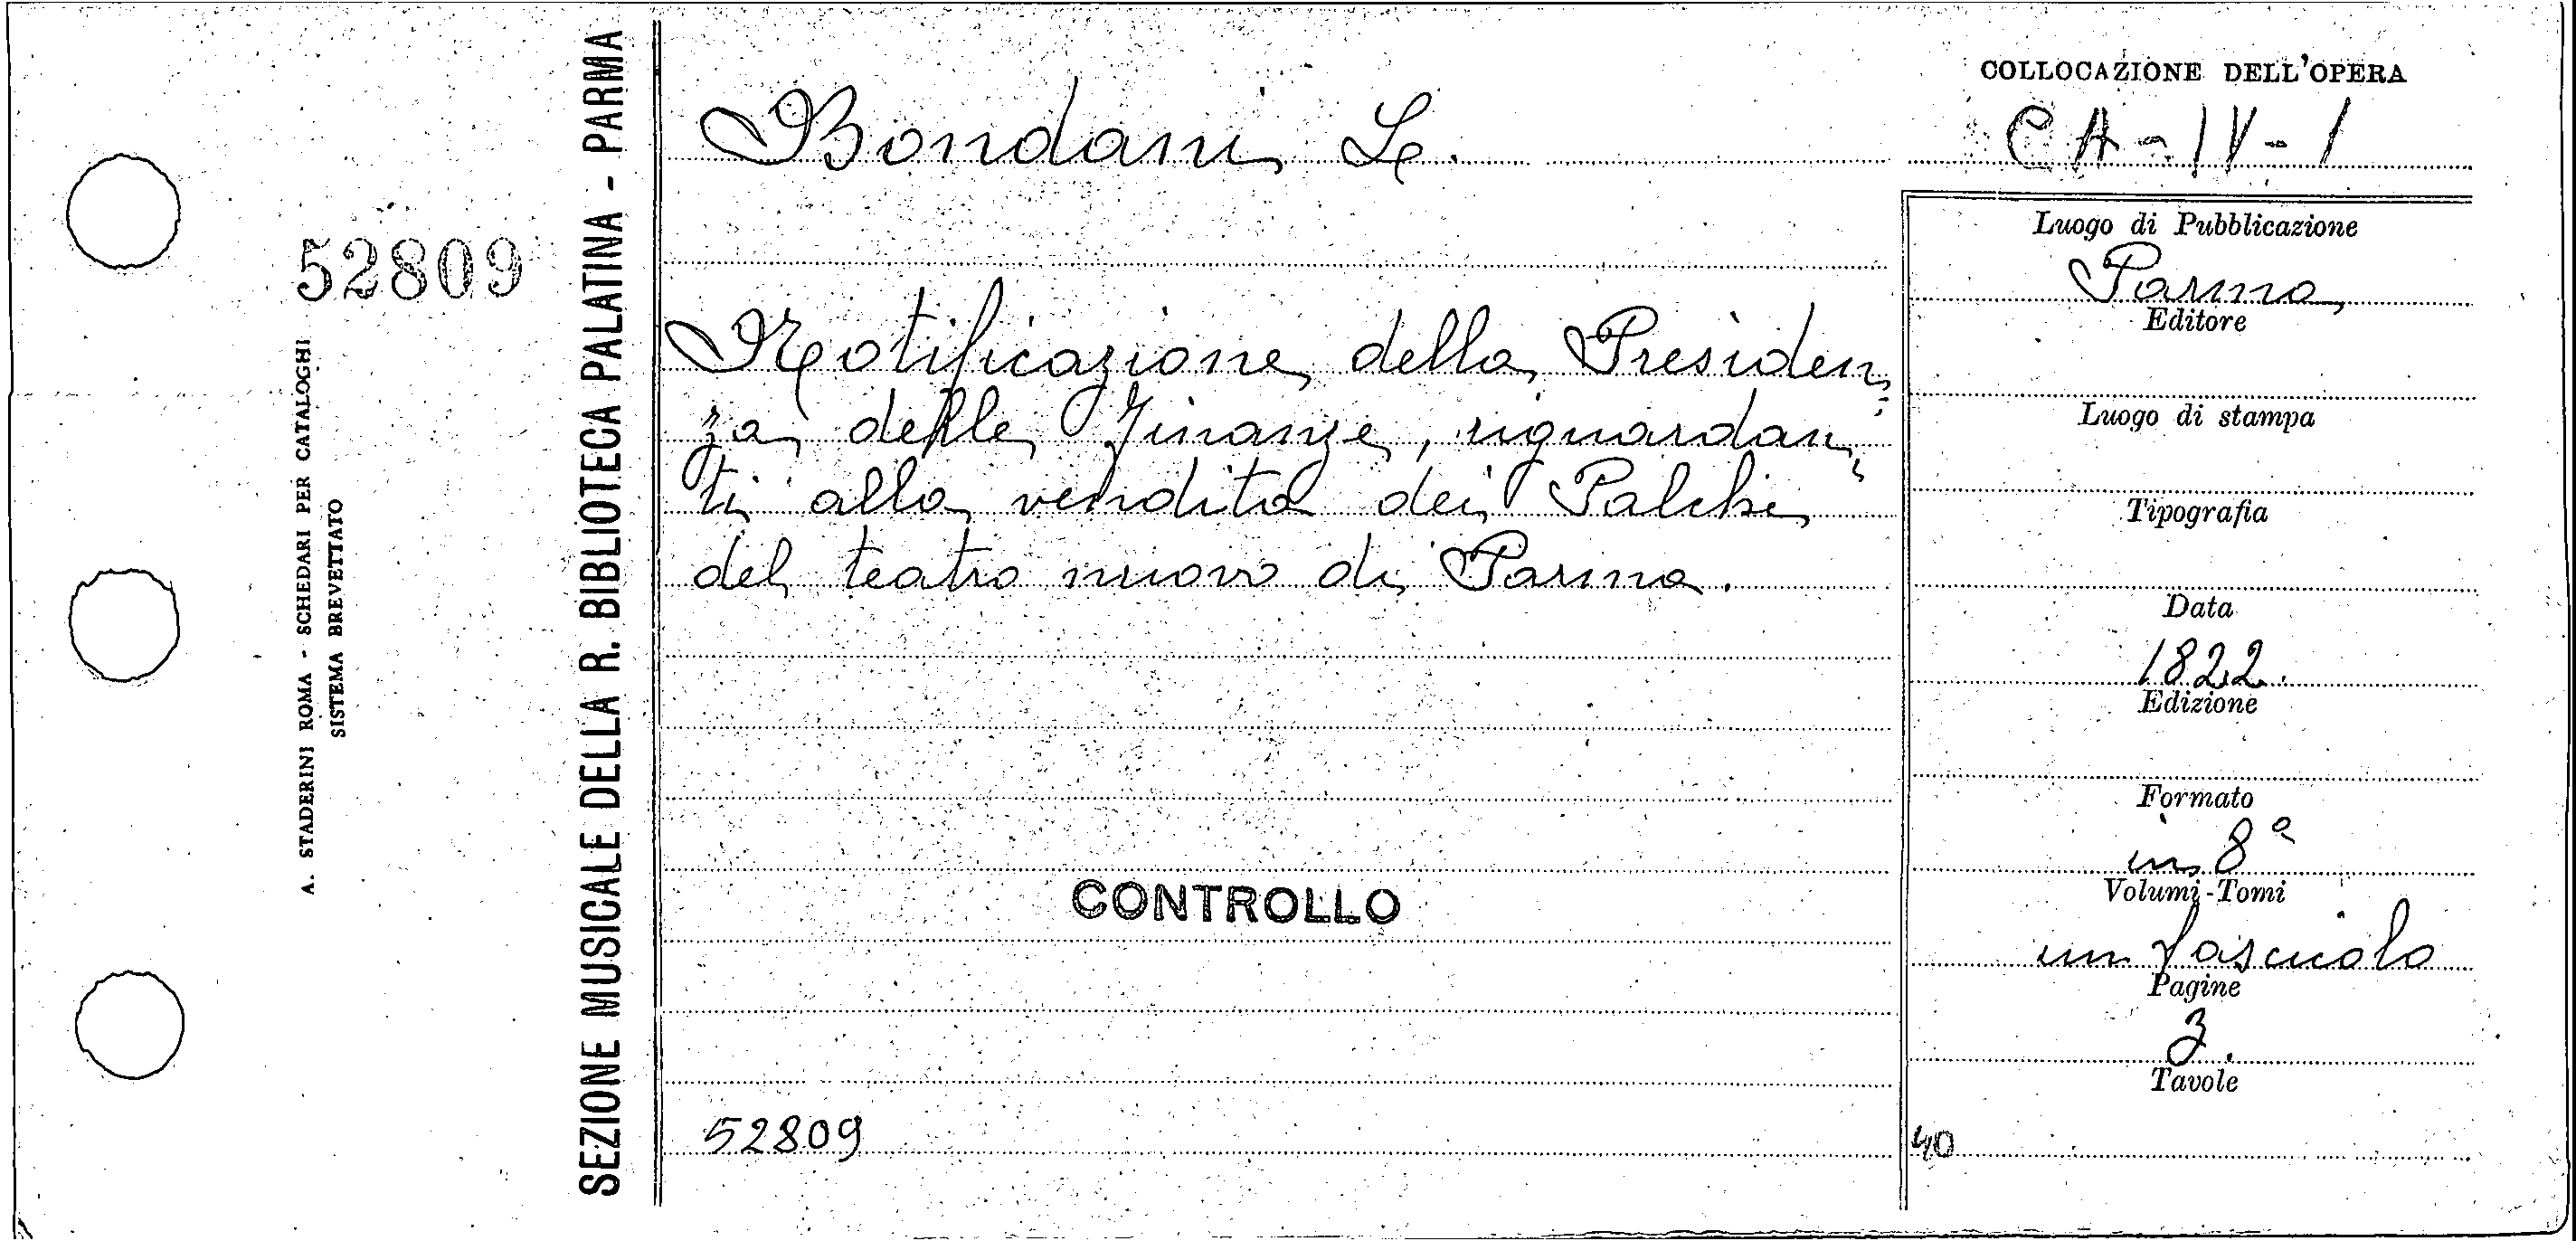 52809
A. STADERINI ROMA - SCHEDARI PER CATALOGHI
SISTEMA BREVETTATO
SEZIONE MUSICALE DELLA R. BIBLIOTECA PALATINA - PARMA
Bondani L.
Notificazione della Presiden=
za delle Finanze, riguardan=
ti alla vendita dei Palchi
del teatro nuovo di Parma.
CONTROLLO
52809
COLLOCAZIONE DELL'OPERA
CA-IV-1
Luogo di Pubblicazione
Parma
Editore
Luogo di stampa
Tipografia
Data
1822.
Edizione
Formato
in 8º
Volumi-Tomi
un fascicolo
Pagine
3.
Tavole
40